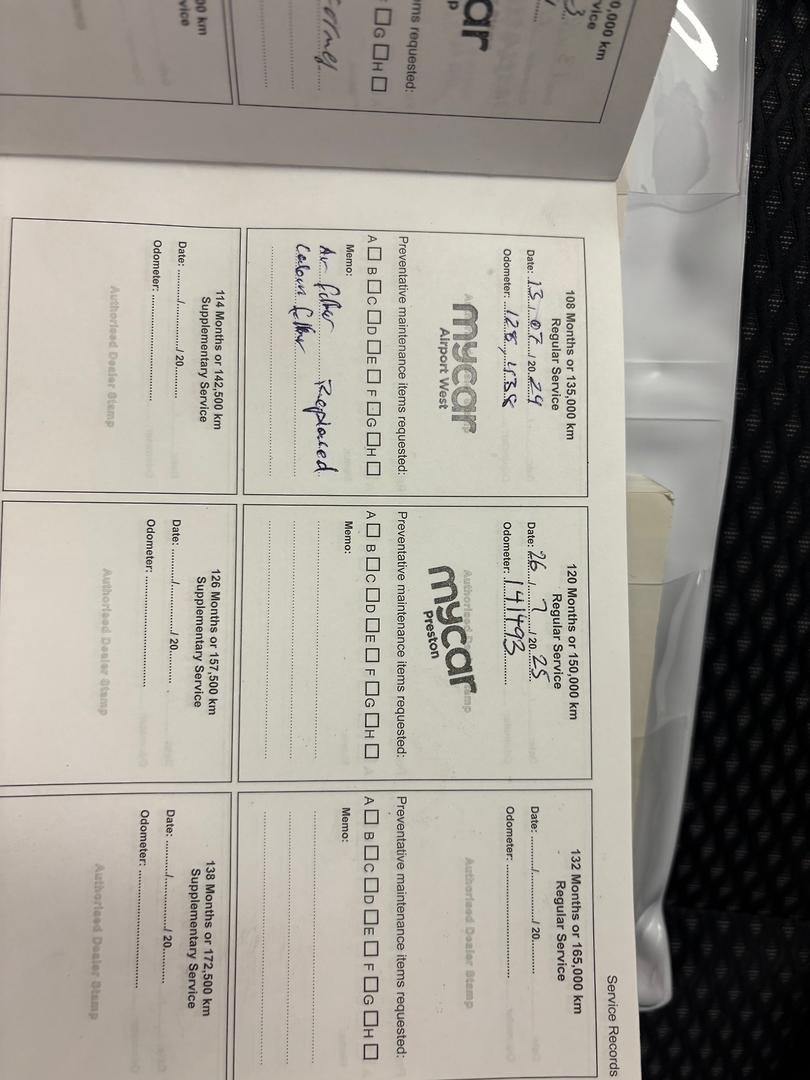 Service Records
0,000 km
vice
ar
p
ms requested:
G H
00 km
vice
108 Months or 135,000 km
Regular Service
Date: 13 / 07 / 20 24
Odometer: 128,438
mycar
Airport West
Preventative maintenance items requested:
A B C D E F G H
Memo:
Air filter Replaced
Cabin filter
120 Months or 150,000 km
Regular Service
Date: 26 / 7 / 20 25
Odometer: 141493
mycar
Preston
Preventative maintenance items requested:
A B C D E F G H
Memo:
132 Months or 165,000 km
Regular Service
Date: ........../............../ 20..........
Odometer: ................................
Authorised Dealer Stamp
Preventative maintenance items requested:
A B C D E F G H
Memo:
114 Months or 142,500 km
Supplementary Service
Date: ........../............../ 20..........
Odometer: ................................
Authorised Dealer Stamp
126 Months or 157,500 km
Supplementary Service
Date: ........../............../ 20..........
Odometer: ................................
Authorised Dealer Stamp
138 Months or 172,500 km
Supplementary Service
Date: ........../............../ 20..........
Odometer: ................................
Authorised Dealer Stamp